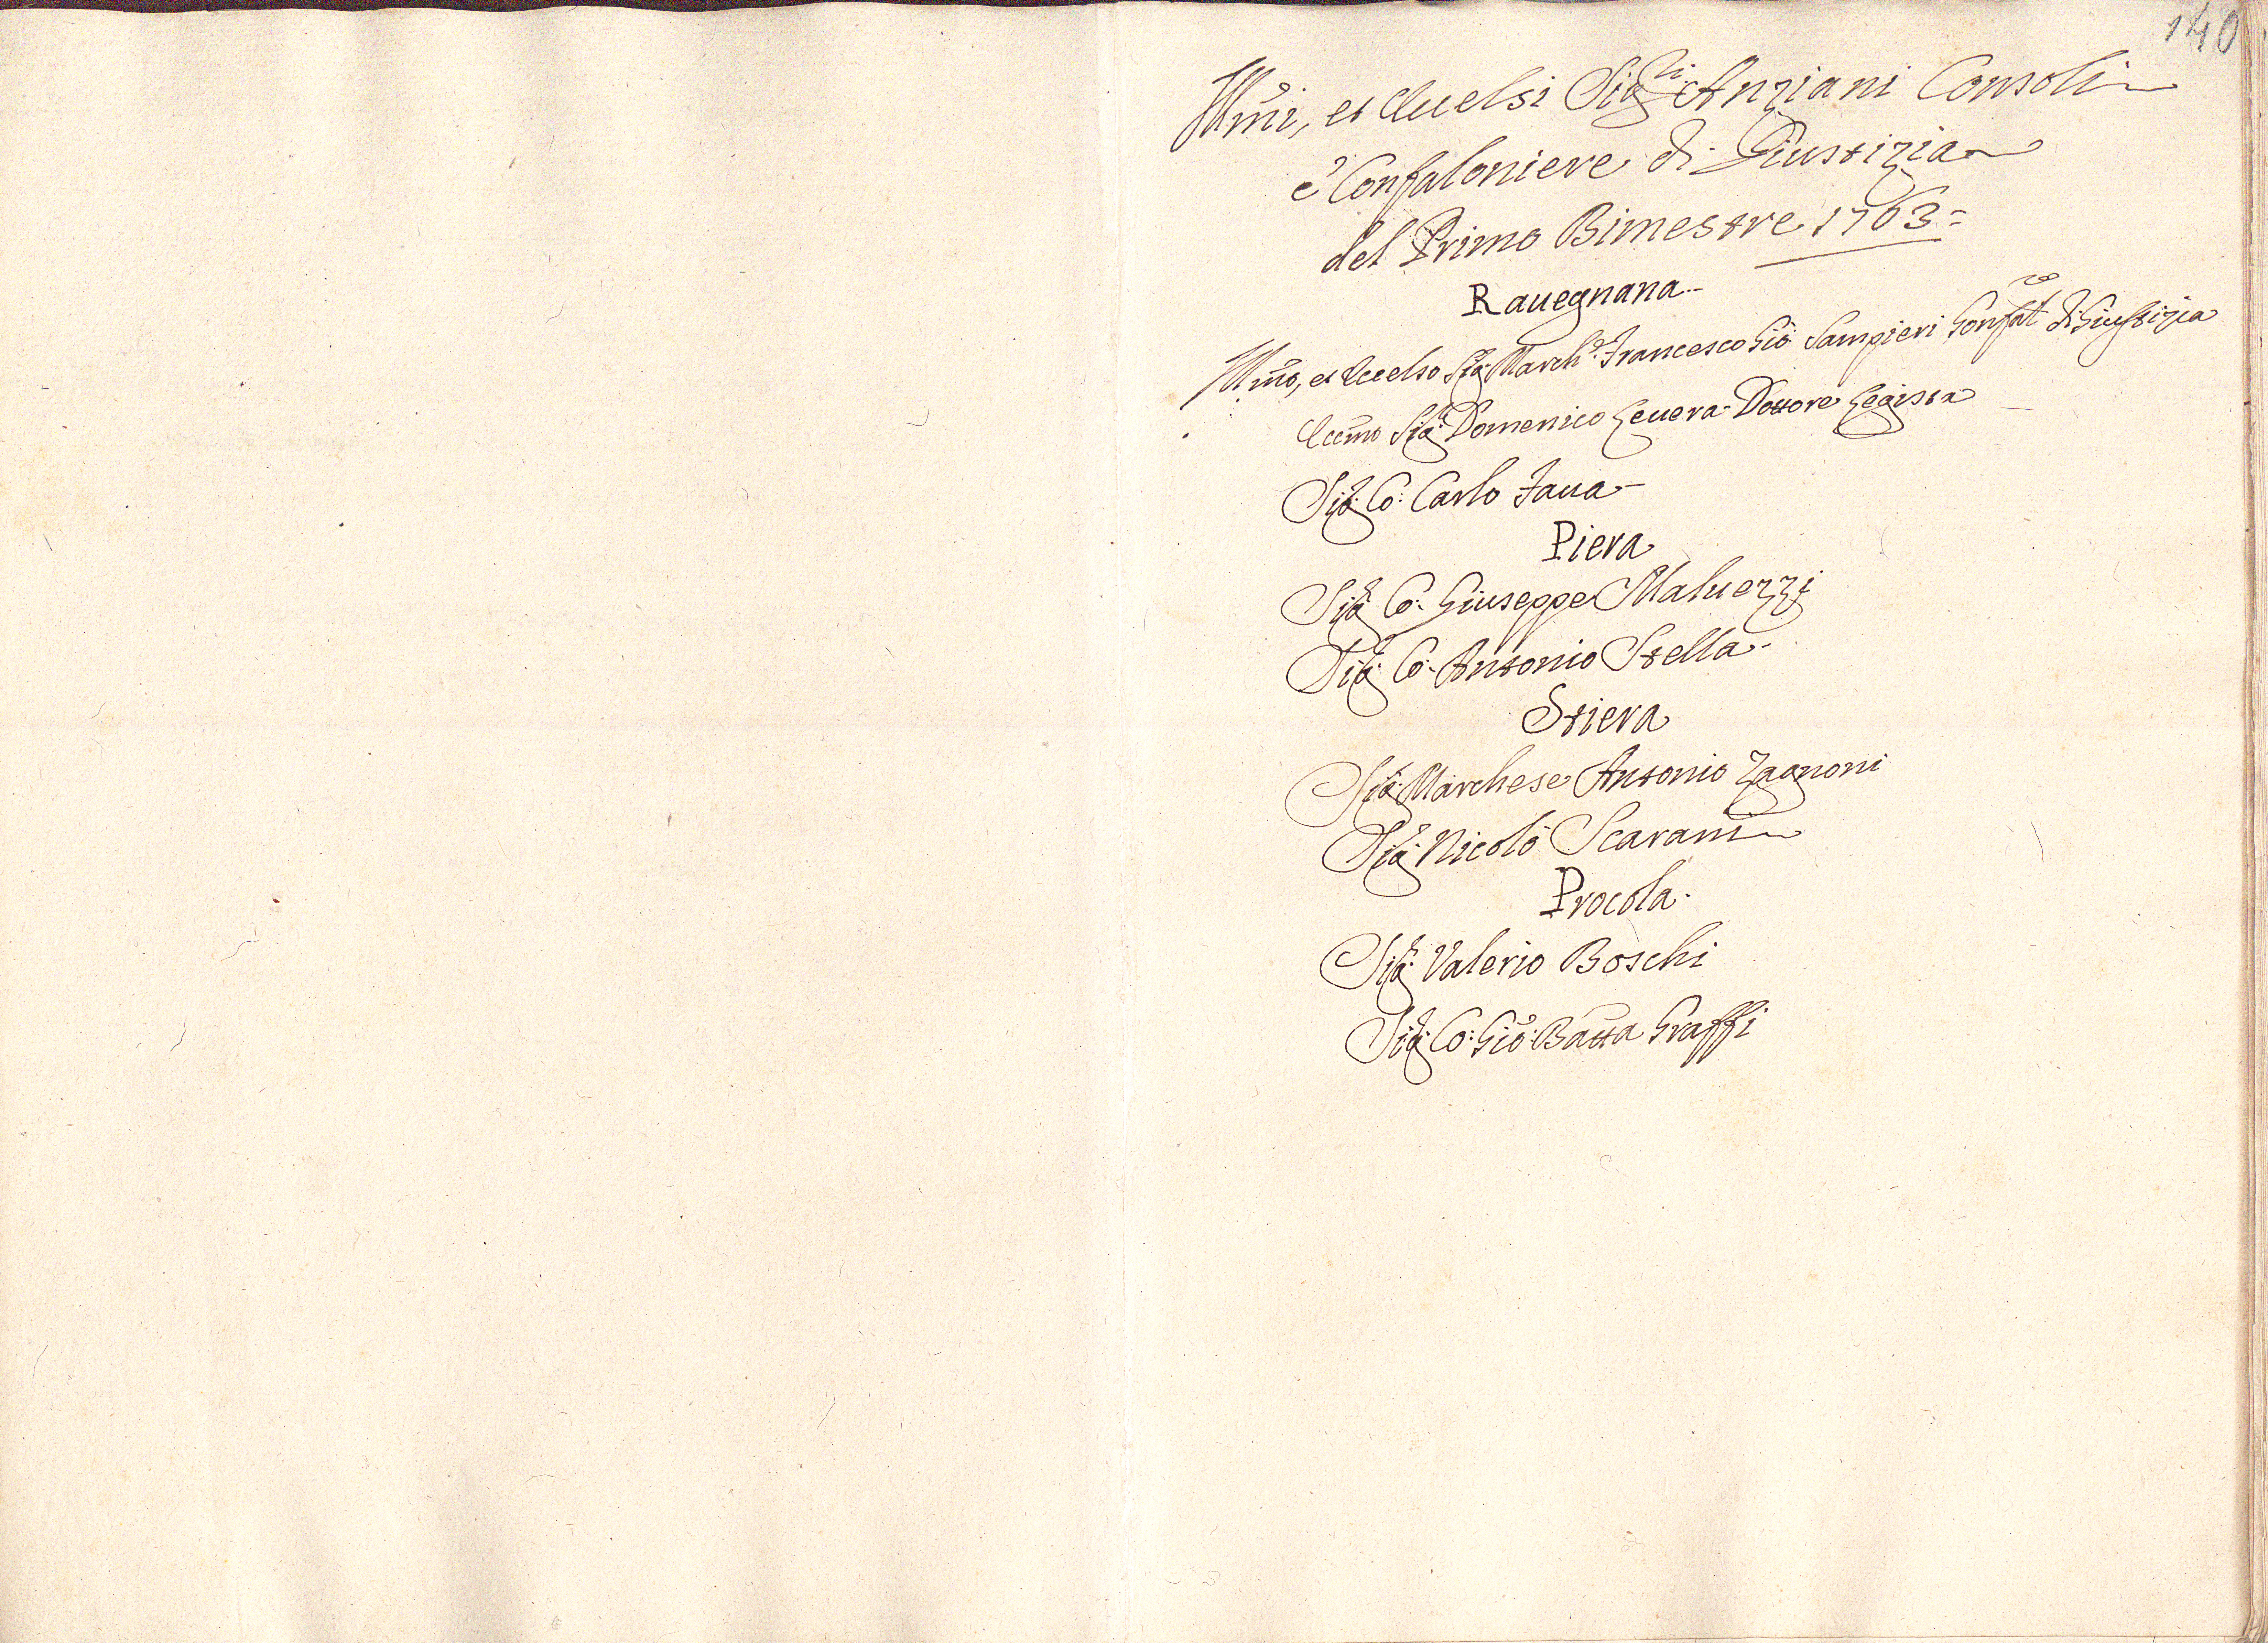 140
Illm̃i, et Eccelsi Sig:ri Anziani Consoli
e' Confaloniere di Giustizia
del Primo Bimestre 1763=
Rauegnana
Illm̃o, et Eccelso Sig:r March:e Francesco Gio: Sampieri Gonfal:re di Giustizia
Eccm̃o Sig:r Domenico Leuera Dottore Legista
Sig:r Co: Carlo Faua
Piera
Sig:r Co: Giuseppe Maluezzi
Sig:r Co: Antonio Stella
Stiera
Sig:r Marchese Antonio Zagnoni
Sig:r Nicolò Scarani
Procola
Sig:r Valerio Boschi
Sig:r Co: Gio: Batta Graffi